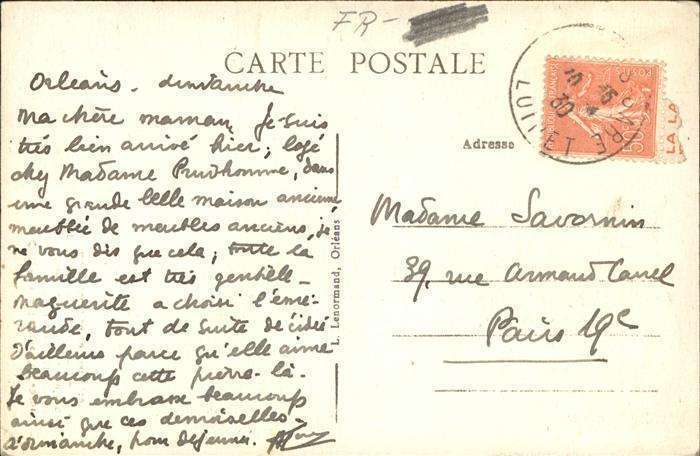 FR-
CARTE POSTALE
Orléans. dimanche
Ma chère maman, Je suis
très bien arrivé hier; logé
chez Madame Prudhomme, dans
une grande belle maison ancienne
meublée de meubles anciens, je
ne vous dis que cela; toute la
famille est très gentille_
Maguerite a choisi l'éme-
raude, tout de suite décidé
d'ailleurs parce qu'elle aime
beaucoup cette pierre-là.
Je vous embrasse beaucoup
ainsi que ces demoiselles_
dimanche, pour déjeuner.
L. Lenormand, Orléans
Adresse
Madame Savornin
39, rue Armand Carrel
Paris 19e
LOIRET
30
LA LA